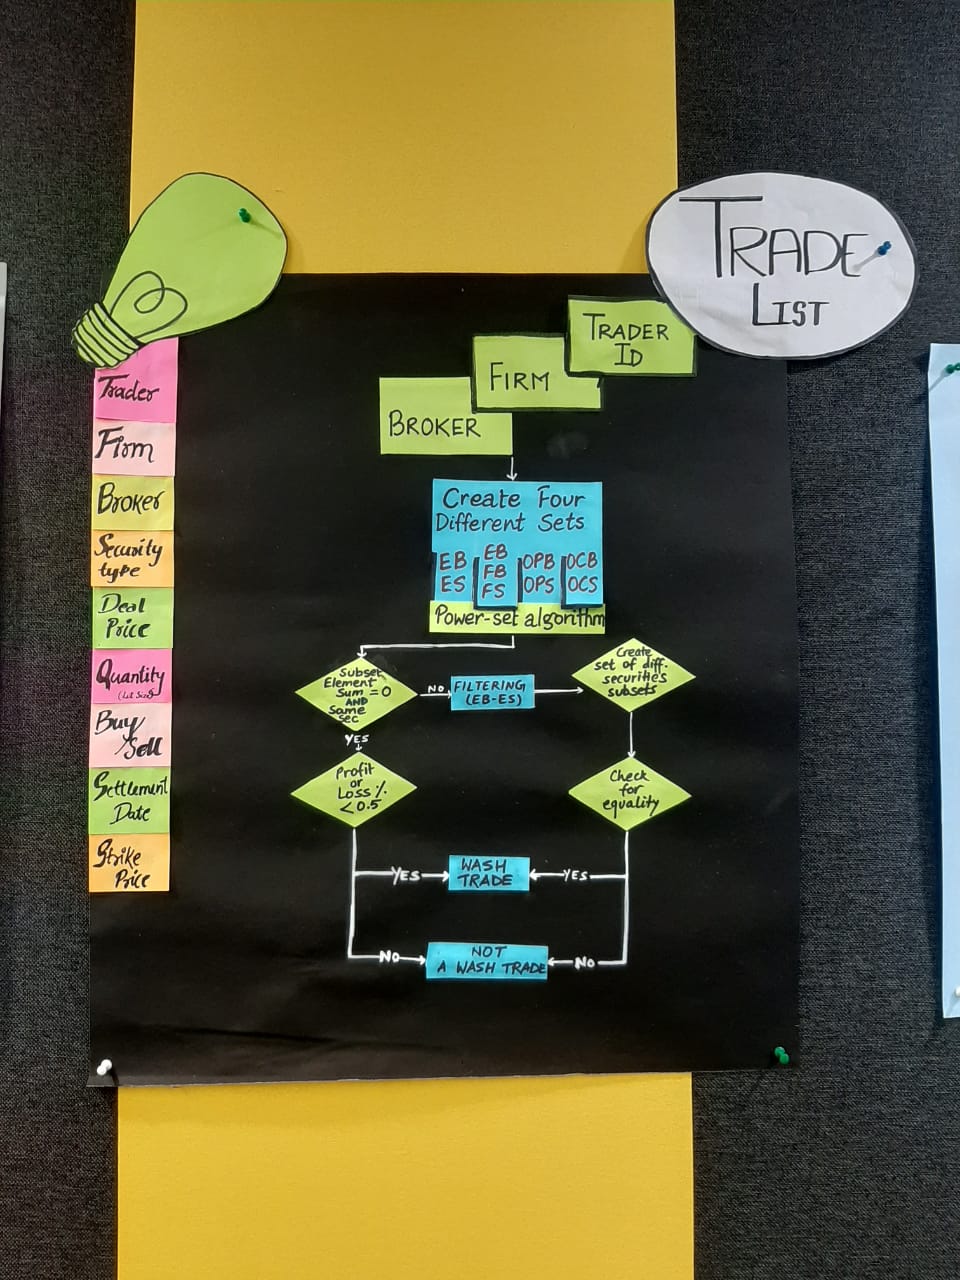 TRADE
LIST
TRADER
ID
FIRM
BROKER
Trader
Firm
Broker
Security
type
Deal
Price
Quantity
(Lot Size)
Buy/
Sell
Settlement
Date
Strike
Price
Create Four
Different Sets
EB
ES
EB
FB
FS
OPB
OPS
OCB
OCS
Power-set algorithm
Subset
Element
Sum = 0
AND
Same
sec
NO
FILTERING
(EB-ES)
Create
set of diff.
securities
subsets
YES
Profit
or
Loss %
<0.5
Check
for
equality
YES
WASH
TRADE
YES
NO
NOT
A WASH TRADE
NO